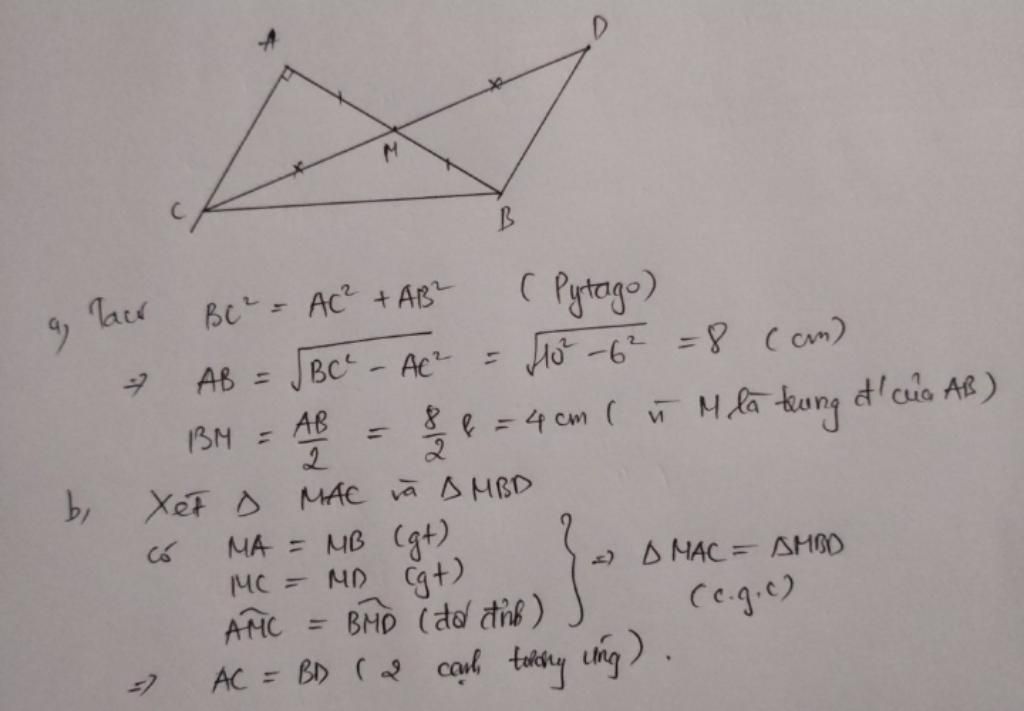 A
D
M
C
B
a, Ta có BC² = AC² + AB² (Pytago)
⇒ AB = √(BC² - AC²) = √(10² - 6²) = 8 (cm)
BM = AB/2 = 8/2 = 4 cm ( vì M là trung đ' của AB)
b, Xét Δ MAC và Δ MBD
có MA = MB (gt)
MC = MD (gt)
⇒ Δ MAC = ΔMBD
(c.g.c)
AMC = BMD (đối đỉnh)
⇒ AC = BD ( 2 cạnh tương ứng).